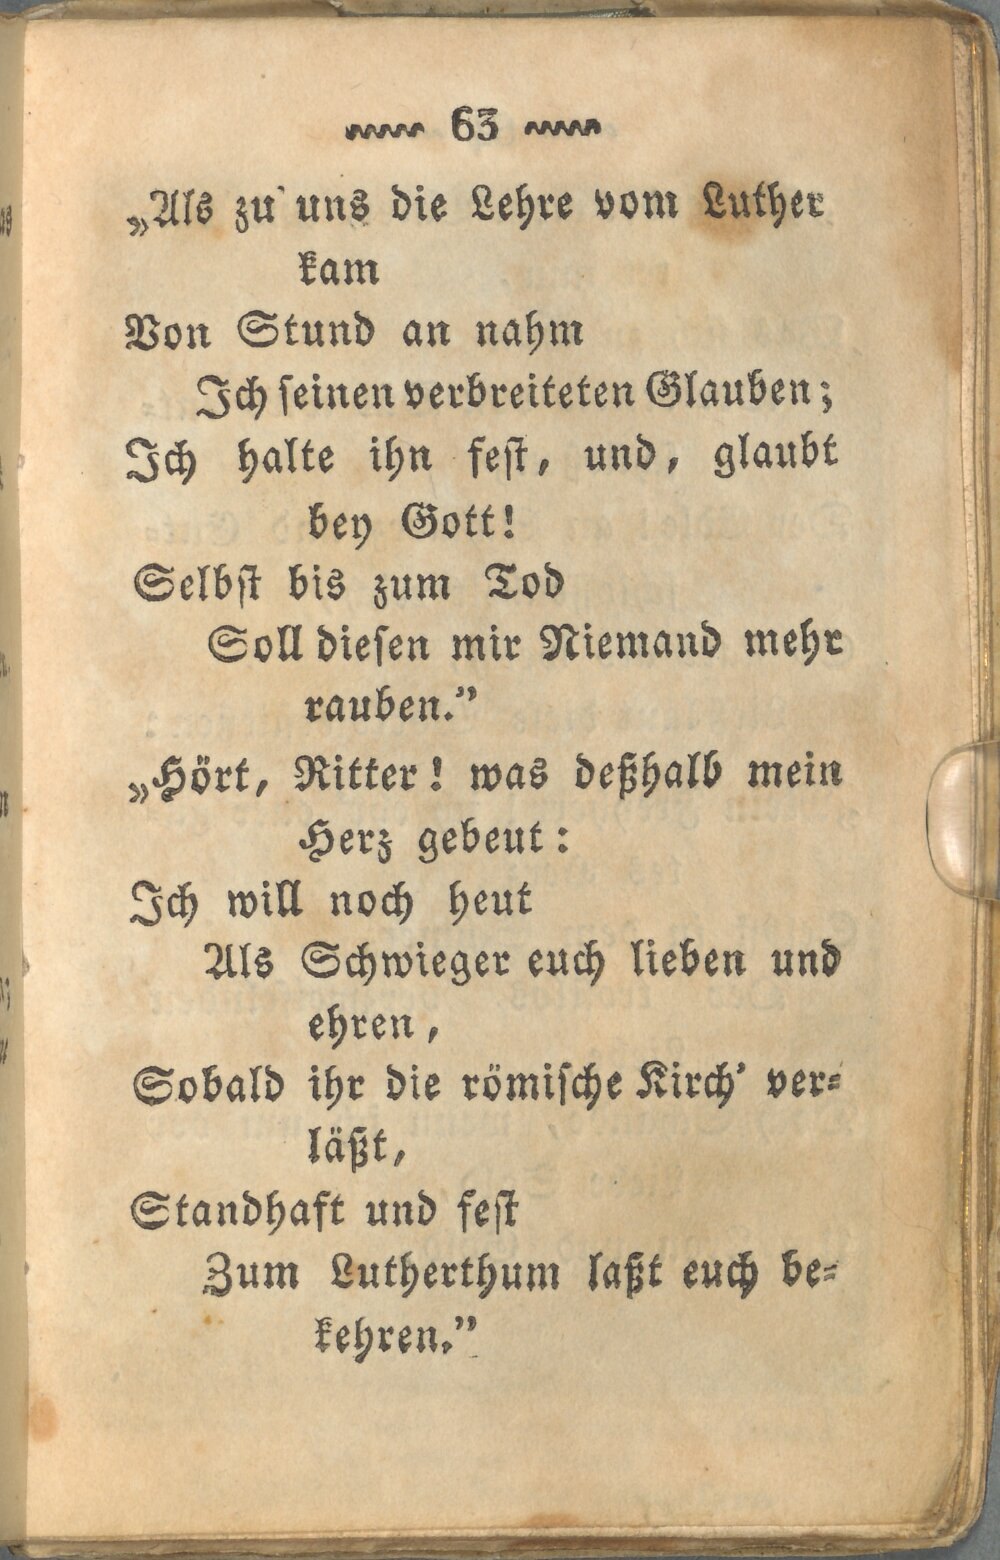 63
„Als zu uns die Lehre vom Luther
kam
Von Stund an nahm
Ich seinen verbreiteten Glauben;
Ich halte ihn fest, und, glaubt
bey Gott!
Selbst bis zum Tod
Soll diesen mir Niemand mehr
rauben.”
„Hört, Ritter! was deßhalb mein
Herz gebeut:
Ich will noch heut
Als Schwieger euch lieben und
ehren,
Sobald ihr die römische Kirch’ ver-
läßt,
Standhaft und fest
Zum Lutherthum laßt euch be-
kehren.”